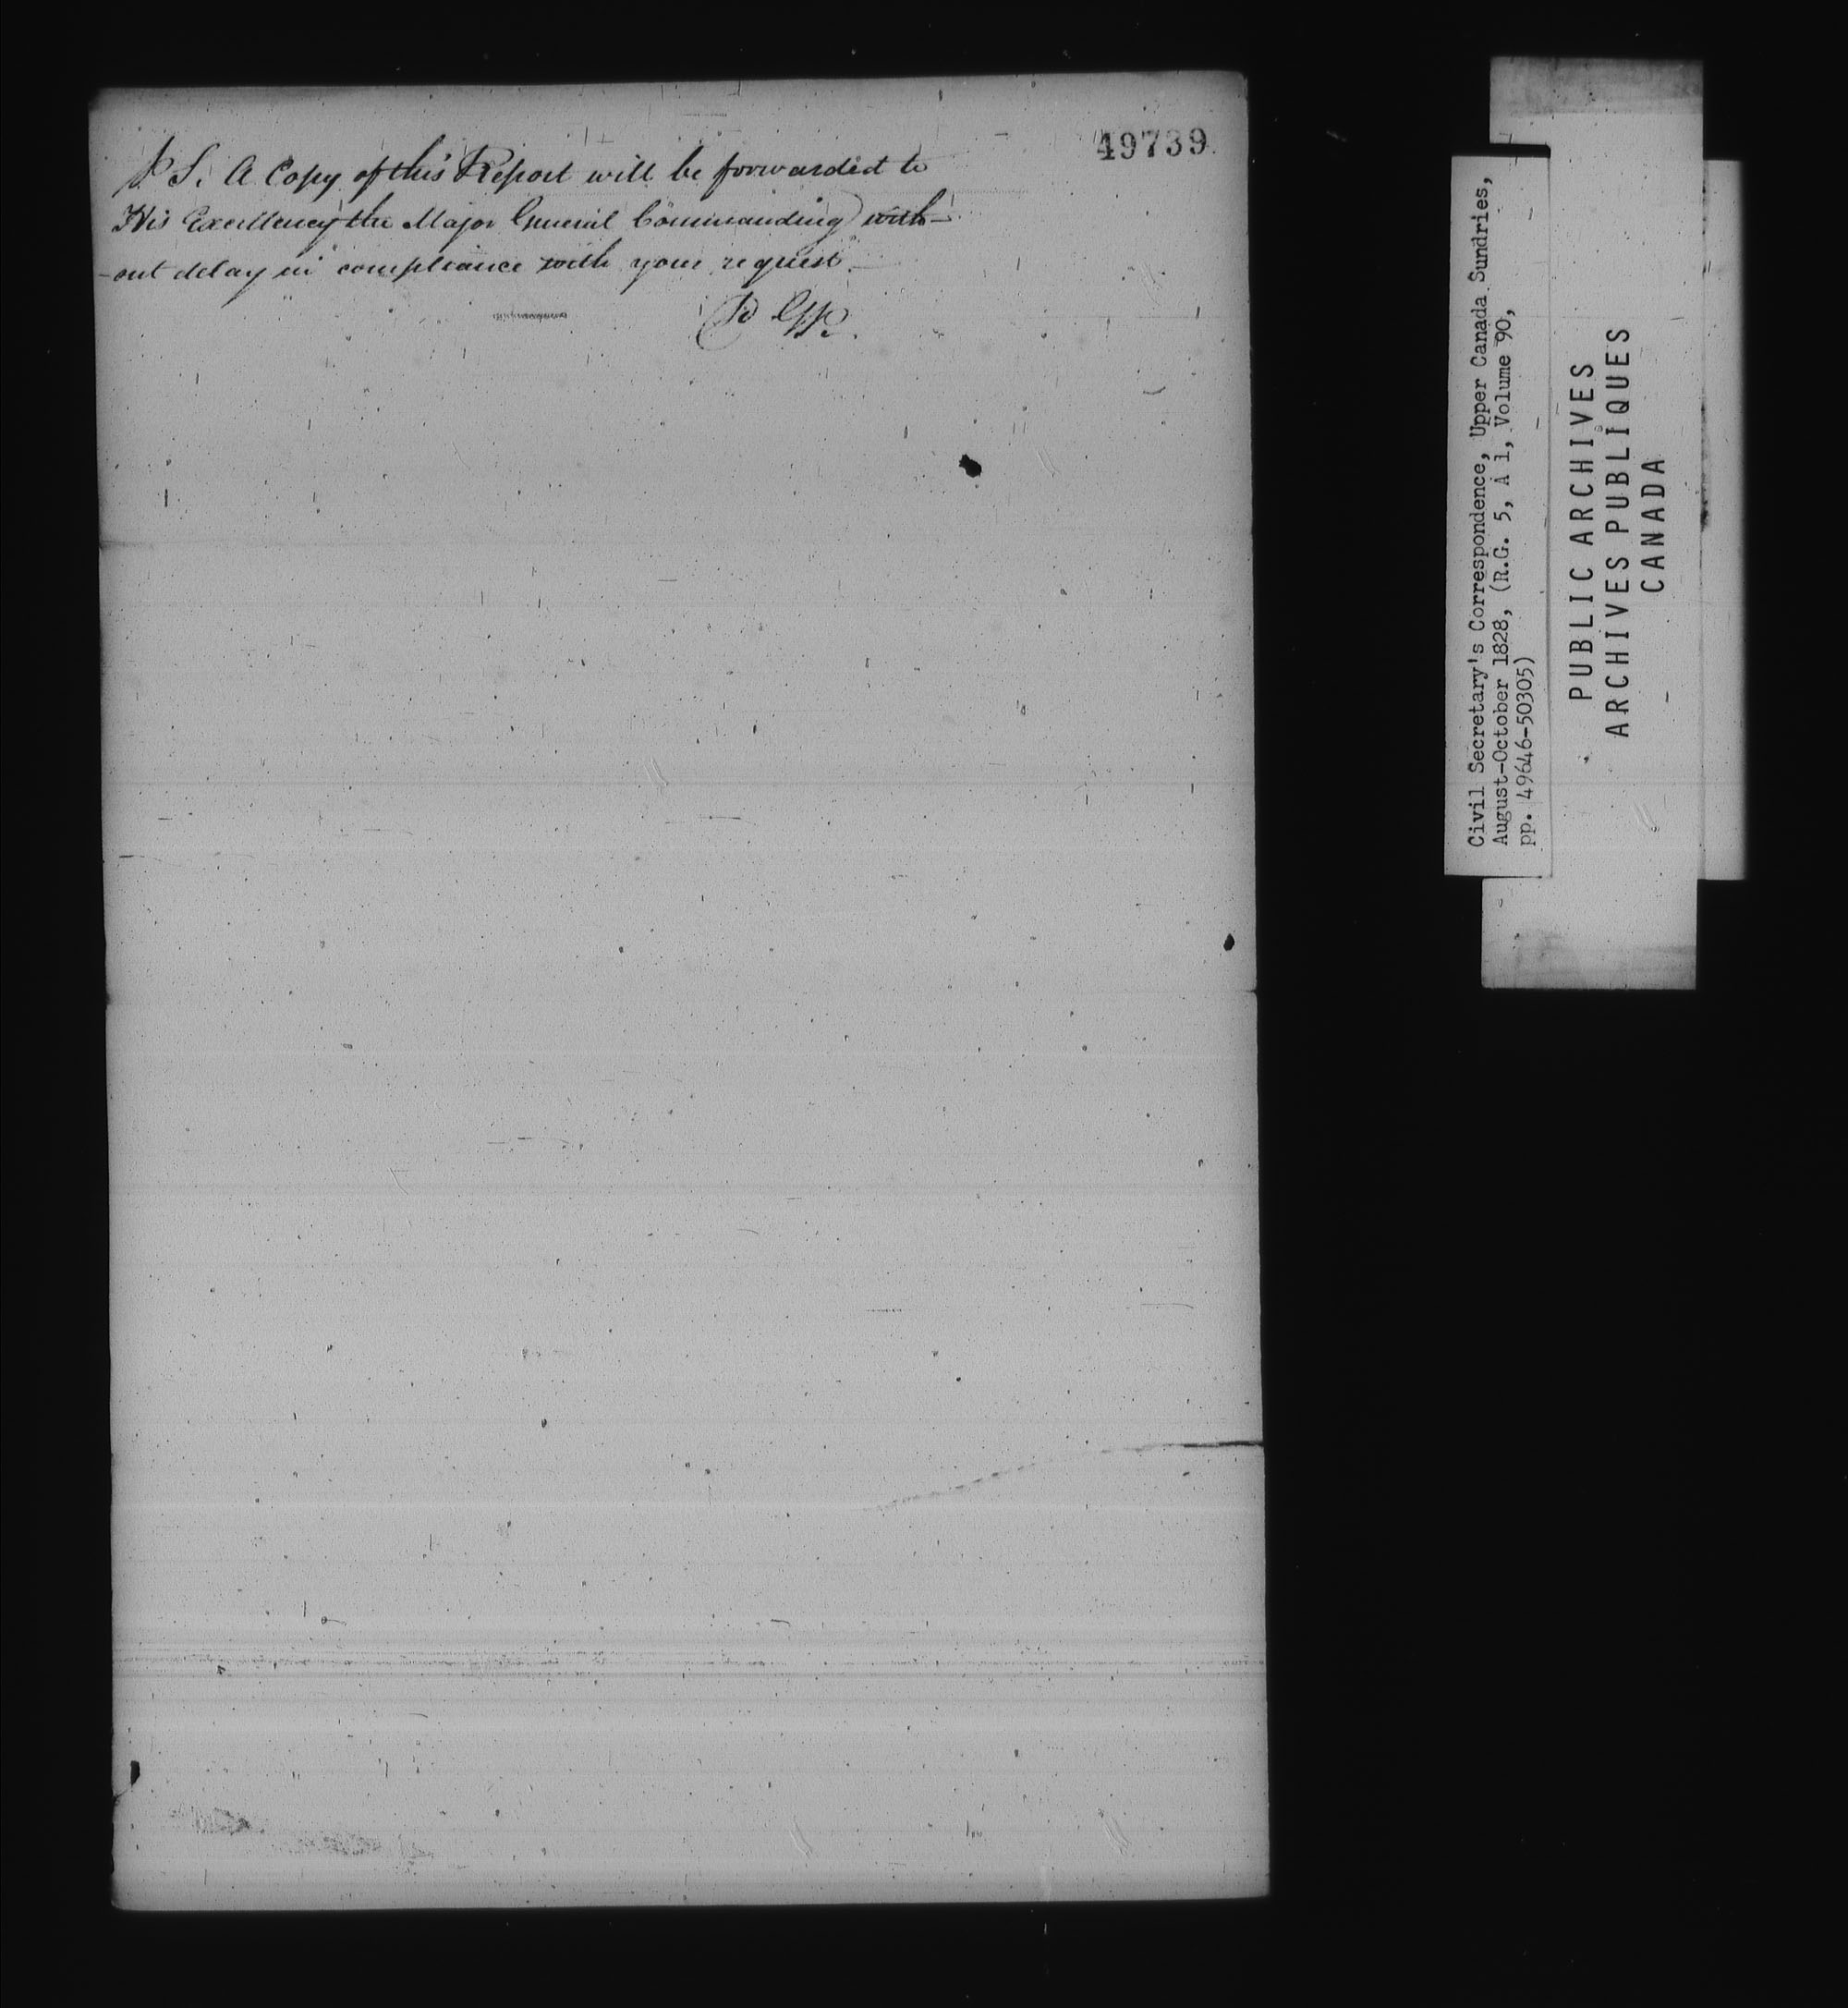 49739
P. S. A Copy of this Report will be forwarded to
His Excellency the Major General Commanding with-
-out delay in compliance with your request.
Civil Secretary's Correspondence, Upper Canada Sundries,
August-October 1828, (R.G. 5, A 1, Volume 90,
pp. 49646-50305)
PUBLIC ARCHIVES
ARCHIVES PUBLIQUES
CANADA